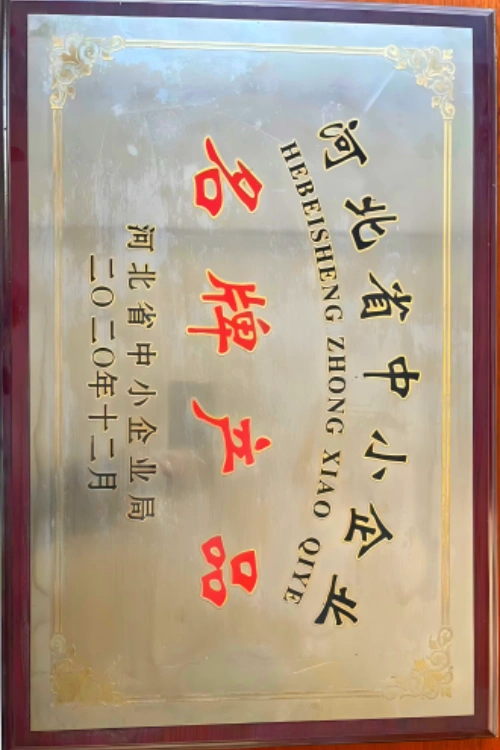 河北省中小企业
HEBEISHENG ZHONG XIAO QIYE
名牌产品
河北省中小企业局
二〇二〇年十二月